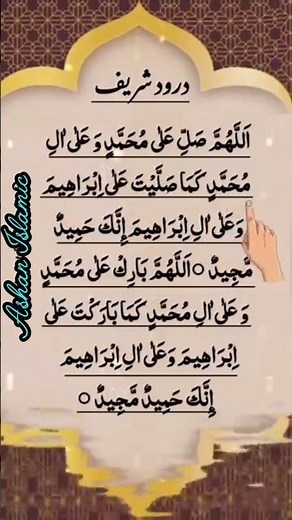 درود شریف
اَللّٰهُمَّ صَلِّ عَلٰى مُحَمَّدٍ وَ عَلٰى اٰلِ
مُحَمَّدٍ كَمَا صَلَّيْتَ عَلٰى اِبْرَاهِيمَ
وَعَلٰى اٰلِ اِبْرَاهِيمَ اِنَّكَ حَمِيدٌ
مَّجِيدٌ ○ اَللّٰهُمَّ بَارِكْ عَلٰى مُحَمَّدٍ
وَ عَلٰى اٰلِ مُحَمَّدٍ كَمَا بَارَكْتَ عَلٰى
اِبْرَاهِيمَ وَعَلٰى اٰلِ اِبْرَاهِيمَ
اِنَّكَ حَمِيدٌ مَّجِيدٌ ○
Ashar Islamic